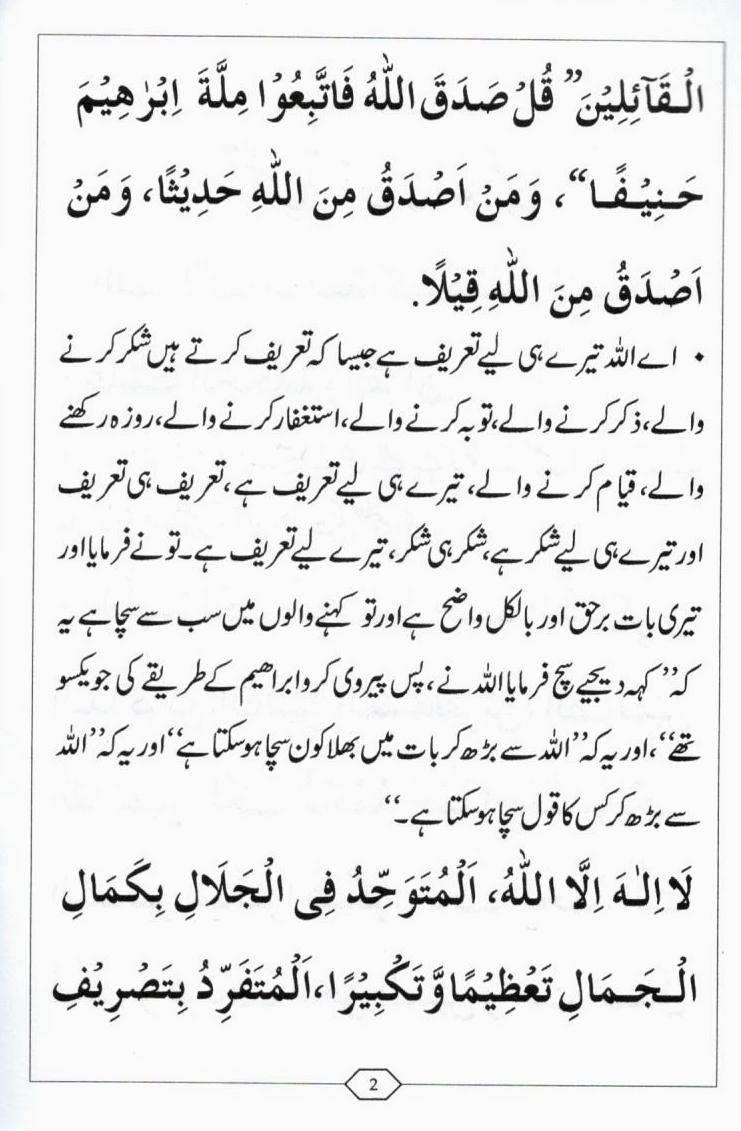 الْقَآئِلِيْنَ ”قُلْ صَدَقَ اللّٰهُ فَاتَّبِعُوْا مِلَّةَ اِبْرٰهِيْمَ
حَنِيْفًا“، وَمَنْ اَصْدَقُ مِنَ اللّٰهِ حَدِيْثًا، وَمَنْ
اَصْدَقُ مِنَ اللّٰهِ قِيْلًا.
• اے اللہ تیرے ہی لیے تعریف ہے جیسا کہ تعریف کرتے ہیں شکر کرنے
والے، ذکر کرنے والے، توبہ کرنے والے، استغفار کرنے والے، روزہ رکھنے
والے، قیام کرنے والے، تیرے ہی لیے تعریف ہے، تعریف ہی تعریف
اور تیرے ہی لیے شکر ہے، شکر ہی شکر، تیرے لیے تعریف ہے۔ تو نے فرمایا اور
تیری بات برحق اور بالکل واضح ہے اور تو کہنے والوں میں سب سے سچا ہے یہ
کہ ”کہہ دیجیے سچ فرمایا اللہ نے، پس پیروی کرو ابراھیم کے طریقے کی جو یکسو
تھے“، اور یہ کہ ”اللہ سے بڑھ کر بات میں بھلا کون سچا ہوسکتا ہے“ اور یہ کہ ”اللہ
سے بڑھ کر کس کا قول سچا ہوسکتا ہے۔“
لَا اِلٰهَ اِلَّا اللّٰهُ، اَلْمُتَوَحِّدُ فِى الْجَلَالِ بِكَمَالِ
الْجَمَالِ تَعْظِيْمًا وَّتَكْبِيْرًا، اَلْمُتَفَرِّدُ بِتَصْرِيْفِ
2